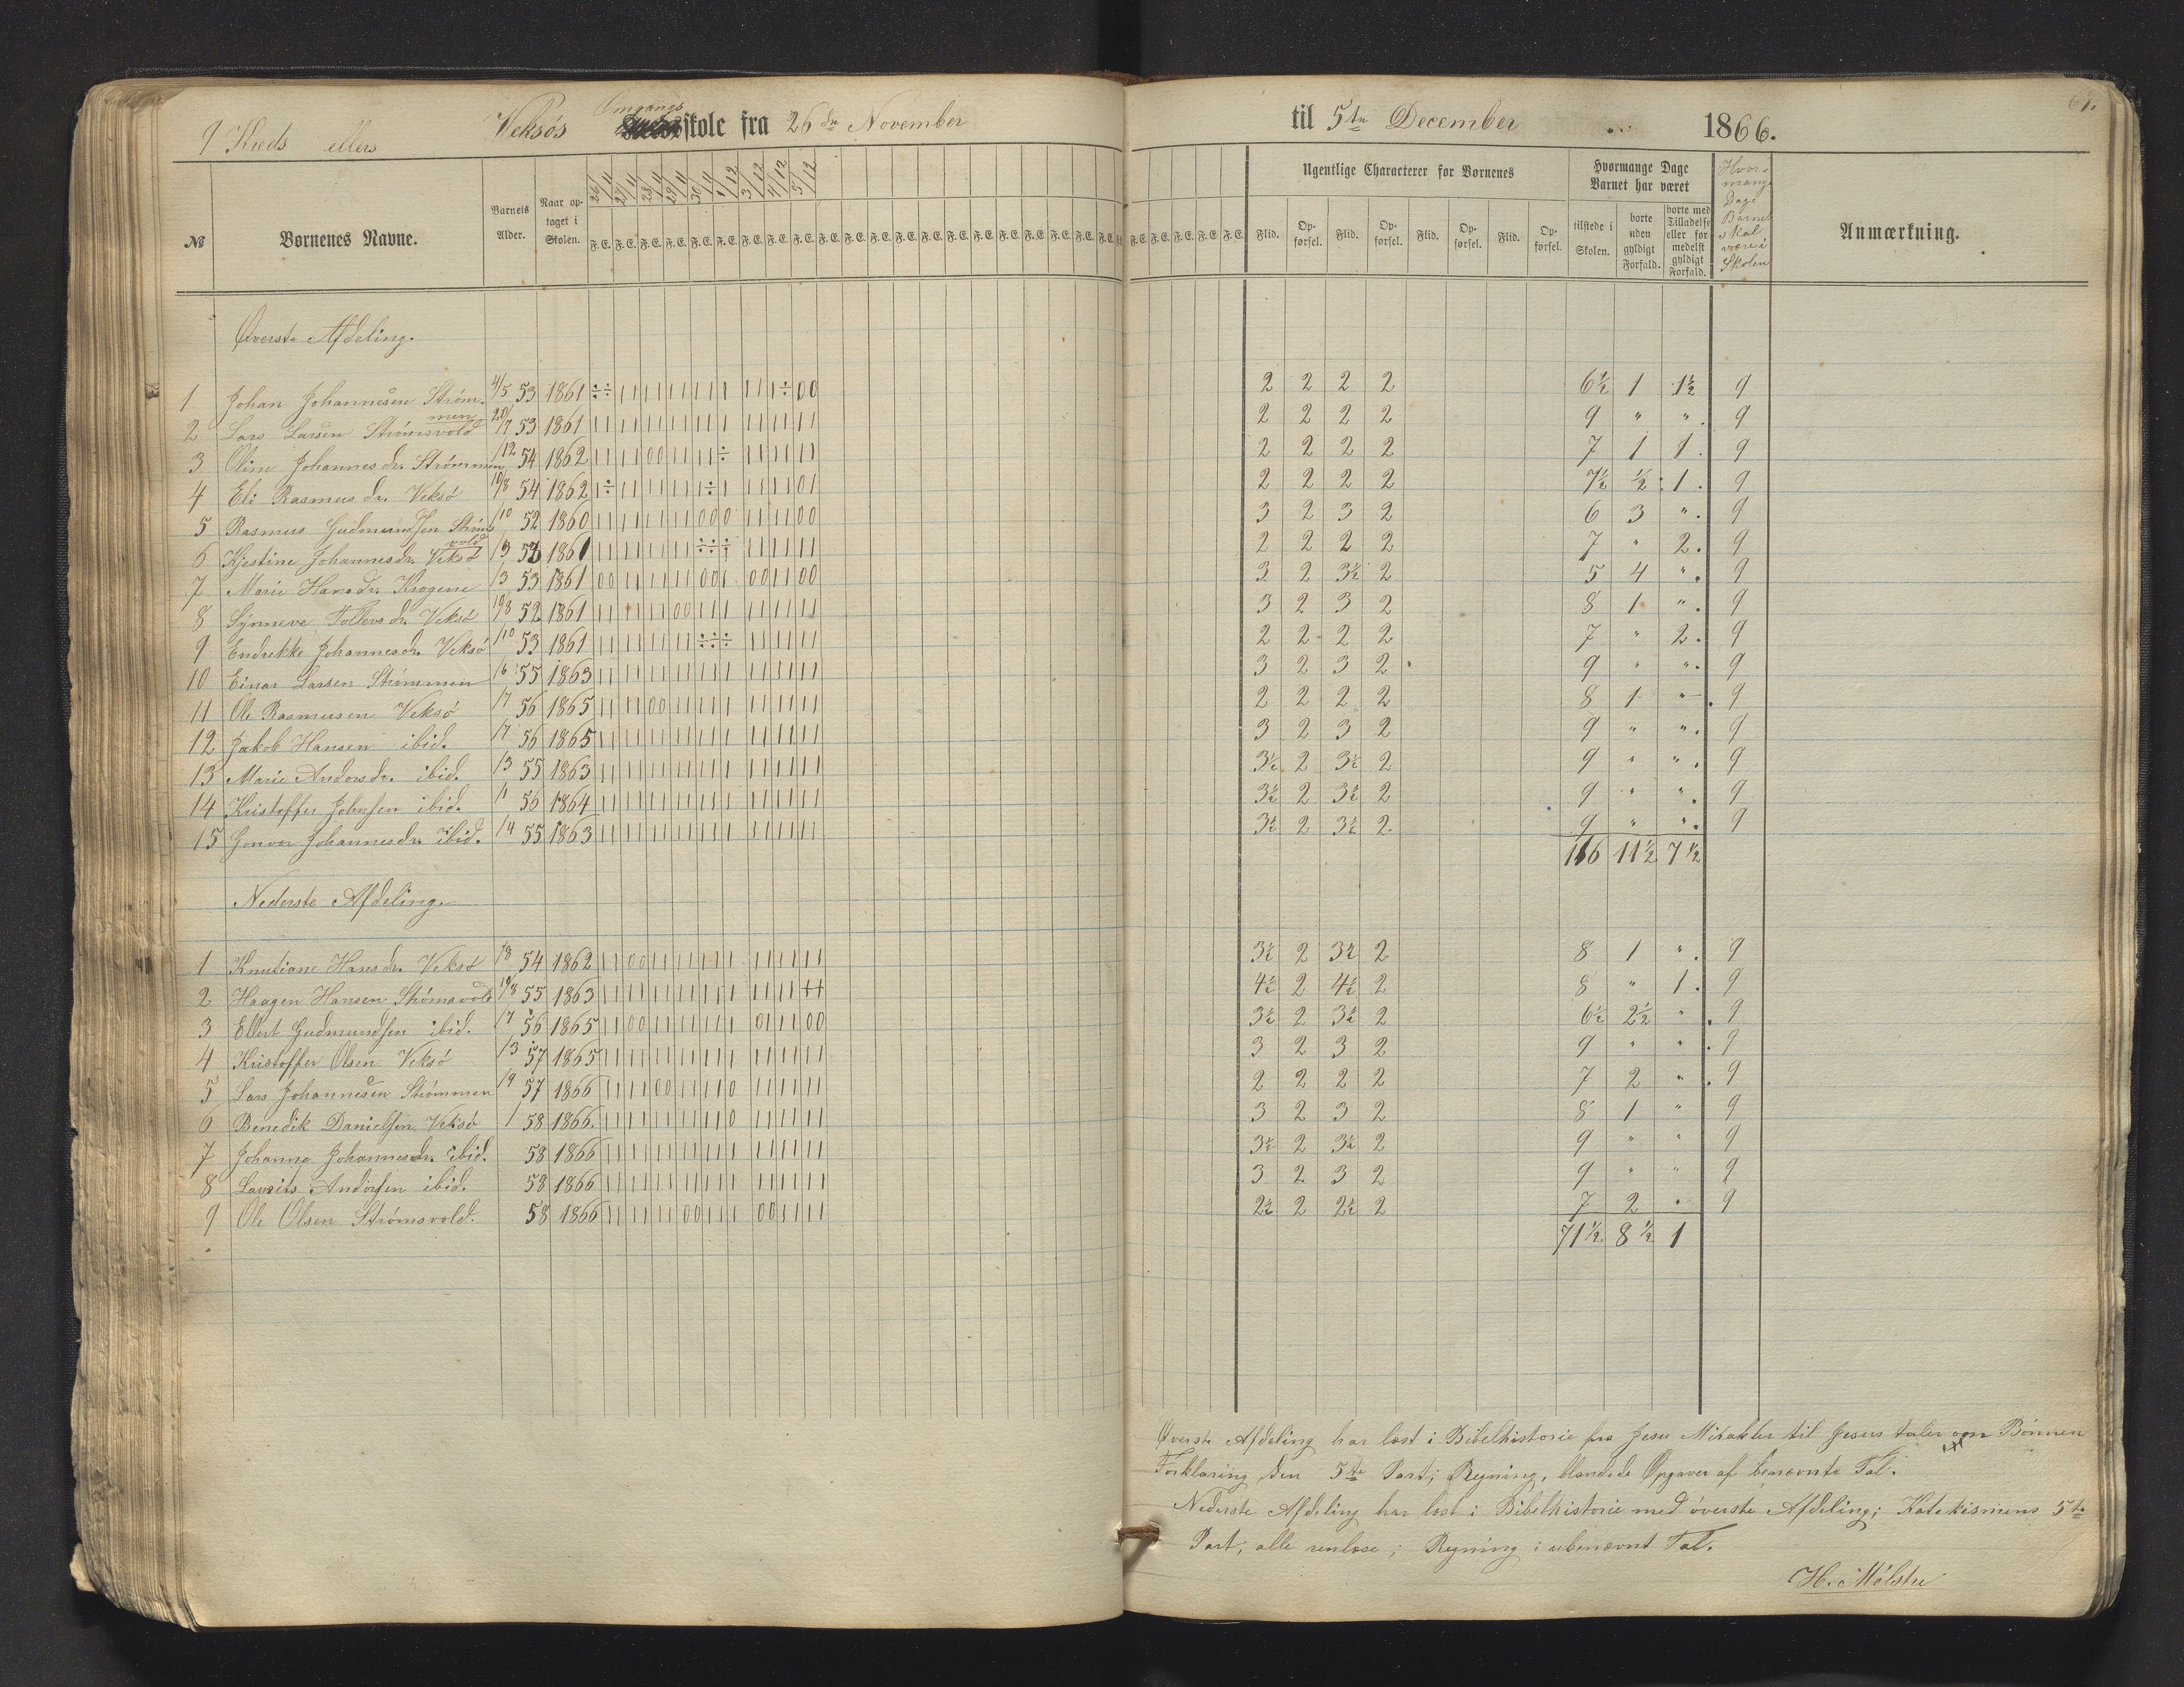 61.
9 Kreds ellers Veksøs Omgangs skole fra 26de November til 5te December 1866.
№ Børnenes Navne. Barnets Alder. Naar optaget i Skolen. 26/11 27/11 28/11 29/11 30/11 1/12 3/12 4/12 5/12 F. E. Ugentlige Characterer for Børnenes Flid. Opførsel. Flid. Opførsel. Flid. Opførsel. Flid. Opførsel. Hvormange Dage Barnet har været tilstede i Skolen. borte uden gyldigt Forfald. borte med Tilladelse eller formedelst gyldigt Forfald. Hvormange Dage Barnet skal være i Skolen Anmærkning.
Øverste Afdeling.
1 Johan Johannesen Strømmen 4/5 53 1861 ÷÷ 11 11 11 11 11 11 1÷ 00 2 2 2 2 6½ 1 1½ 9
2 Lars Larsen Strømsvold 20/7 53 1861 11 11 11 11 11 11 11 11 11 2 2 2 2 9 " " 9
3 Oline Johannesdr. Strømmen /12 54 1862 11 11 00 11 11 ÷ 11 11 11 2 2 2 2 7 1 1 9
4 Eli Rasmusdr. Veksø 10/8 54 1862 1÷ 11 11 11 1÷ 1 11 11 01 2 2 2 2 7½ ½ 1 9
5 Rasmus Gudmundsen Strømsvold /10 52 1860 11 11 11 11 00 0 11 11 00 3 2 3 2 6 3 " 9
6 Kjestine Johannesdr. Veksø /9 53 1861 11 11 11 11 ÷÷ ÷ 11 11 11 2 2 2 2 7 " 2 9
7 Marie Hansdr. Krogene /3 53 1861 00 11 11 11 00 1 00 11 00 3 2 3½ 2 5 4 " 9
8 Synneve Tollevsdr. Veksø 10/8 52 1861 11 11 11 00 11 1 11 11 11 3 2 3 2 8 1 " 9
9 Endrekke Johannesdr. Veksø /10 53 1861 11 11 11 11 ÷÷ ÷ 11 11 11 2 2 2 2 7 " 2 9
10 Einar Larsen Strømmen /6 55 1863 11 11 11 11 11 1 11 11 11 3 2 3 2 9 " " 9
11 Ole Rasmusen Veksø /7 56 1865 11 11 00 11 11 1 11 11 11 2 2 2 2 8 1 " 9
12 Jakob Hansen ibid. /7 56 1865 11 11 11 11 11 1 11 11 11 3 2 3 2 9 " " 9
13 Marie Andersdr. ibid. /3 55 1863 11 11 11 11 11 1 11 11 11 3½ 2 3½ 2 9 " " 9
14 Kristoffer Johnsen ibid. /1 56 1864 11 11 11 11 11 1 11 11 11 3½ 2 3½ 2 9 " " 9
15 Gunvor Johannesdr. ibid. /4 55 1863 11 11 11 11 11 1 11 11 11 3½ 2 3½ 2 9 " " 9
116 11½ 7½
Nederste Afdeling.
1 Knutiane Hansdr. Veksø /8 54 1862 11 00 11 11 11 1 11 11 11 3½ 2 3½ 2 8 1 " 9
2 Haagen Hansen Strømsvold 19/8 55 1863 11 11 11 11 11 1 11 11 ++ 4½ 2 4½ 2 8 " 1 9
3 Ellert Gudmundsen ibid. /7 56 1865 11 00 11 11 11 1 01 11 00 3½ 2 3½ 2 6½ 2½ " 9
4 Kristoffer Olsen Veksø /3 57 1865 11 11 11 11 11 1 11 11 11 3 2 3 2 9 " " 9
5 Lars Johannesen Strømmen /9 57 1866 11 11 00 11 11 0 11 11 11 2 2 2 2 7 2 " 9
6 Benedik Danielsen Veksø /1 58 1866 11 11 11 11 11 0 11 11 11 3 2 3 2 8 1 " 9
7 Johanne Johannesdr. ibid. 58 1866 11 11 11 11 11 1 11 11 11 3½ 2 3½ 2 9 " " 9
8 Lavrits Andersen ibid. 58 1866 11 11 11 11 11 1 11 11 11 3 2 3 2 9 " " 9
9 Ole Olsen Strømsvold. 58 1866 11 11 11 00 11 1 00 11 11 2½ 2 2½ 2 7 2 " 9
71½ 8½ 1
Øverste Afdeling har læst i Bibelhistorie fra Jesu Mirakler til Jesus taler om Bønnen
Forklaring den 5te Part; Regning, blandede Opgaver af benævnte Tal.
Nederste Afdeling har læst i Bibelhistorie med øverste Afdeling; Katekismens 5te
Part, alle renlæse; Regning i ubenævnt Tal.
H. Mølstre